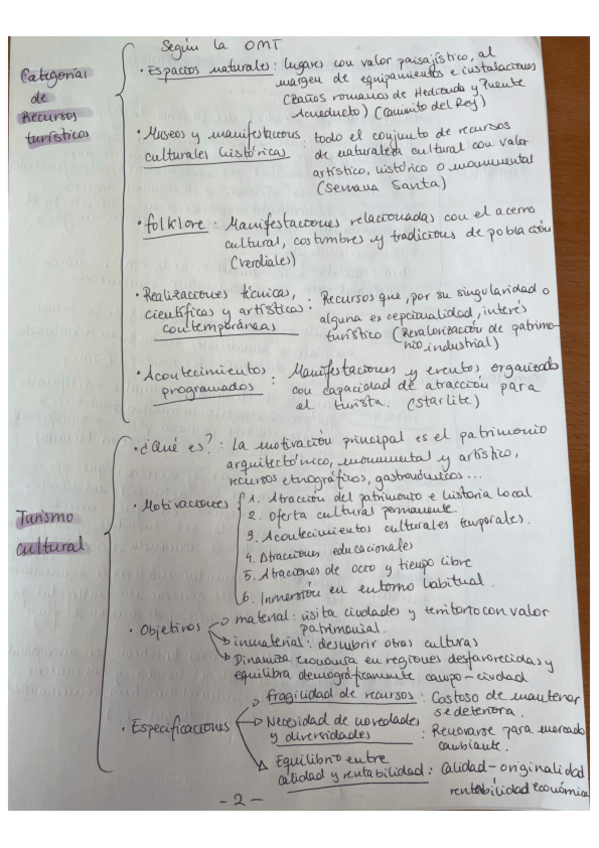 Categorías
de
Recursos
turísticos
Según la OMT
· Espacios naturales : lugares con valor paisajístico, al
margen de equipamientos e instalaciones
(Baños romanos de Hedionda y Puente
Acueducto) (Caminito del Rey)
· Museos y manifestaciones
culturales históricas : todo el conjunto de recursos
de naturaleza cultural con valor
artístico, histórico o monumental
(Semana Santa)
· folklore : Manifestaciones relacionadas con el acervo
cultural, costumbres y tradiciones de población
(verdiales)
· Realizaciones técnicas,
científicas y artísticas
contemporáneas : Recursos que, por su singularidad o
alguna es expcionalidad, interés
turístico (Revalorización de patrimo-
nio industrial)
· Acontecimientos
programados : Manifestaciones y eventos, organizado
con capacidad de atracción para
el turista. (Starlite)
Turismo
cultural
· ¿Qué es? : la motivación principal es el patrimonio
arquitectónico, monumental y artístico,
recursos etnográficos, gastronómicos...
· Motivaciones
1. Atracción del patrimonio e historia local
2. Oferta culturas permanente.
3. Acontecimientos culturales temporales.
4. Atracciones educacionales
5. Atracciones de ocio y tiempo libre
6. Inmersión en entorno habitual.
· Objetivos → material : visita ciudades y territorio con valor
patrimonial.
→ inmaterial : descubrir otras culturas
→ Dinamiza economía en regiones desfavorecidas y
equilibra demográficamente campo-ciudad
· Especificaciones → fragilidad de recursos : Costoso de mantener
se deteriora.
→ Necesidad de novedades
y diversidades : Renovarse para mercado
cambiante.
→ Equilibrio entre
calidad y rentabilidad : Calidad-originalidad
rentabilidad económica
- 2 -